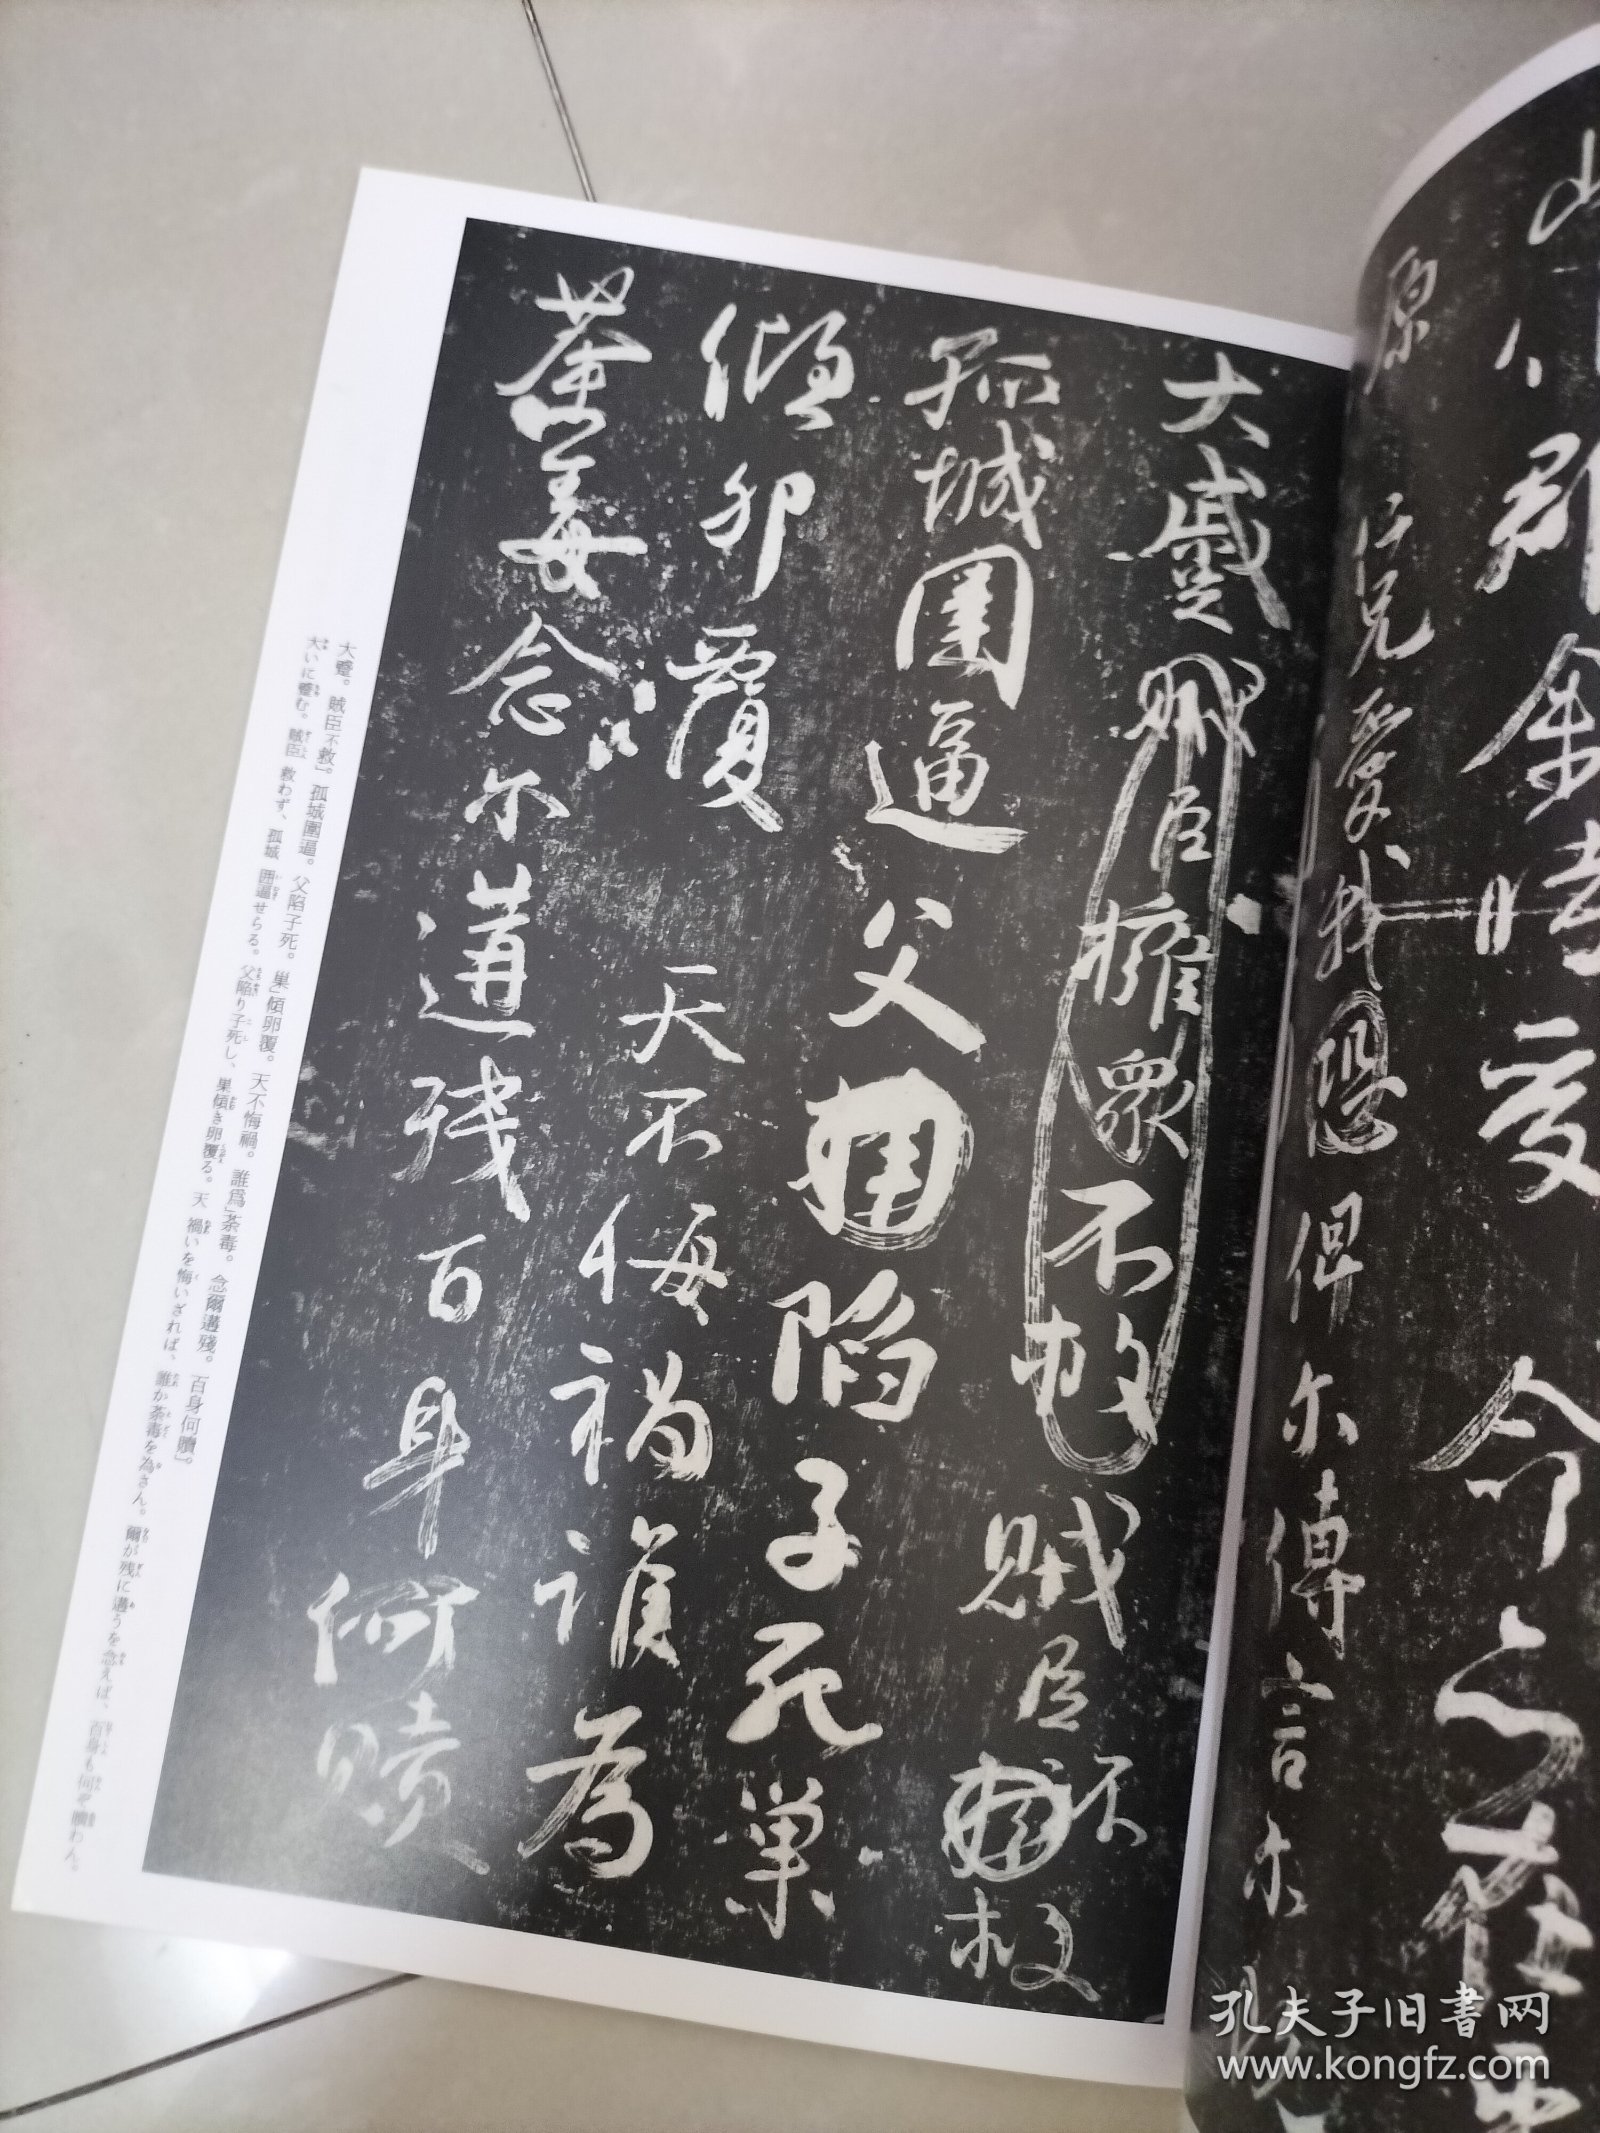 山
郡
余時受
命
亦在
原
仁兄愛我
恐
俾尔傳言
尔
大蹙賊臣擁衆不救賊臣不
救
孤城圍逼父陷子死巢
傾卵覆天不悔禍誰為
荼毒念尔遘殘百身何贖
大蹙。賊臣不救」。孤城圍逼。父陷子死。巢」傾卵覆。天不悔禍。誰爲」荼毒。念爾遘殘。百身何贖」。
大いに蹙む。賊臣 救わず、孤城 囲逼せらる。父陥り子死し、巣傾き卵覆る。天 禍いを悔いざれば、誰か荼毒を為さん。爾が残に遘うを念えば、百身も何ぞ贖わん。
孔夫子旧书网
www.kongfz.com